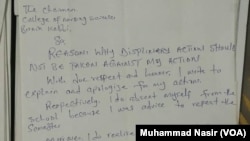 The Chairman
College of nursing sciences
Birnin Kebbi.
Sir
REASONS WHY DISPLINARY ACTION SHOULD
NOT BE TAKEN AGAINST MY ACTION
With due respect and humour, I write to
explain and apologise for my action.
Respectively, I do absent myself from the
school because I was advice to respect the
I do realise
Muhammad Nasir (VOA)